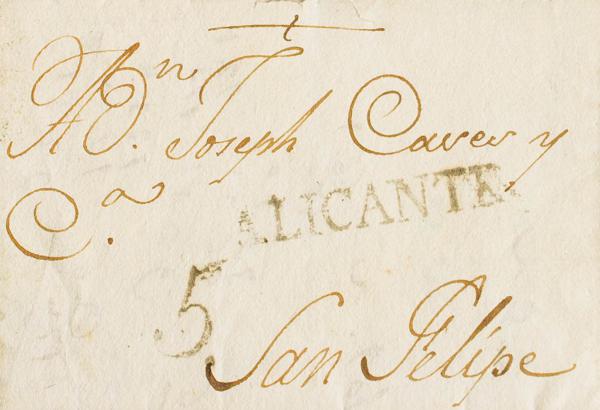 A Dn. Joseph Caver y
Ca.
ALICANTE
5
San Felipe